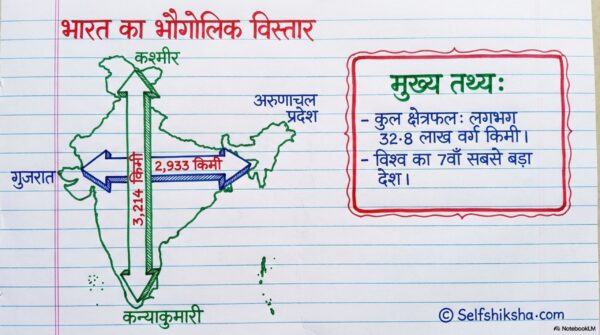 भारत का भौगोलिक विस्तार
कश्मीर
अरुणाचल
प्रदेश
2,933 किमी
3,214 किमी
गुजरात
कन्याकुमारी
मुख्य तथ्य:
- कुल क्षेत्रफल: लगभग
32.8 लाख वर्ग किमी।
- विश्व का 7वाँ सबसे बड़ा
देश।
© Selfshiksha.com
NotebookLM